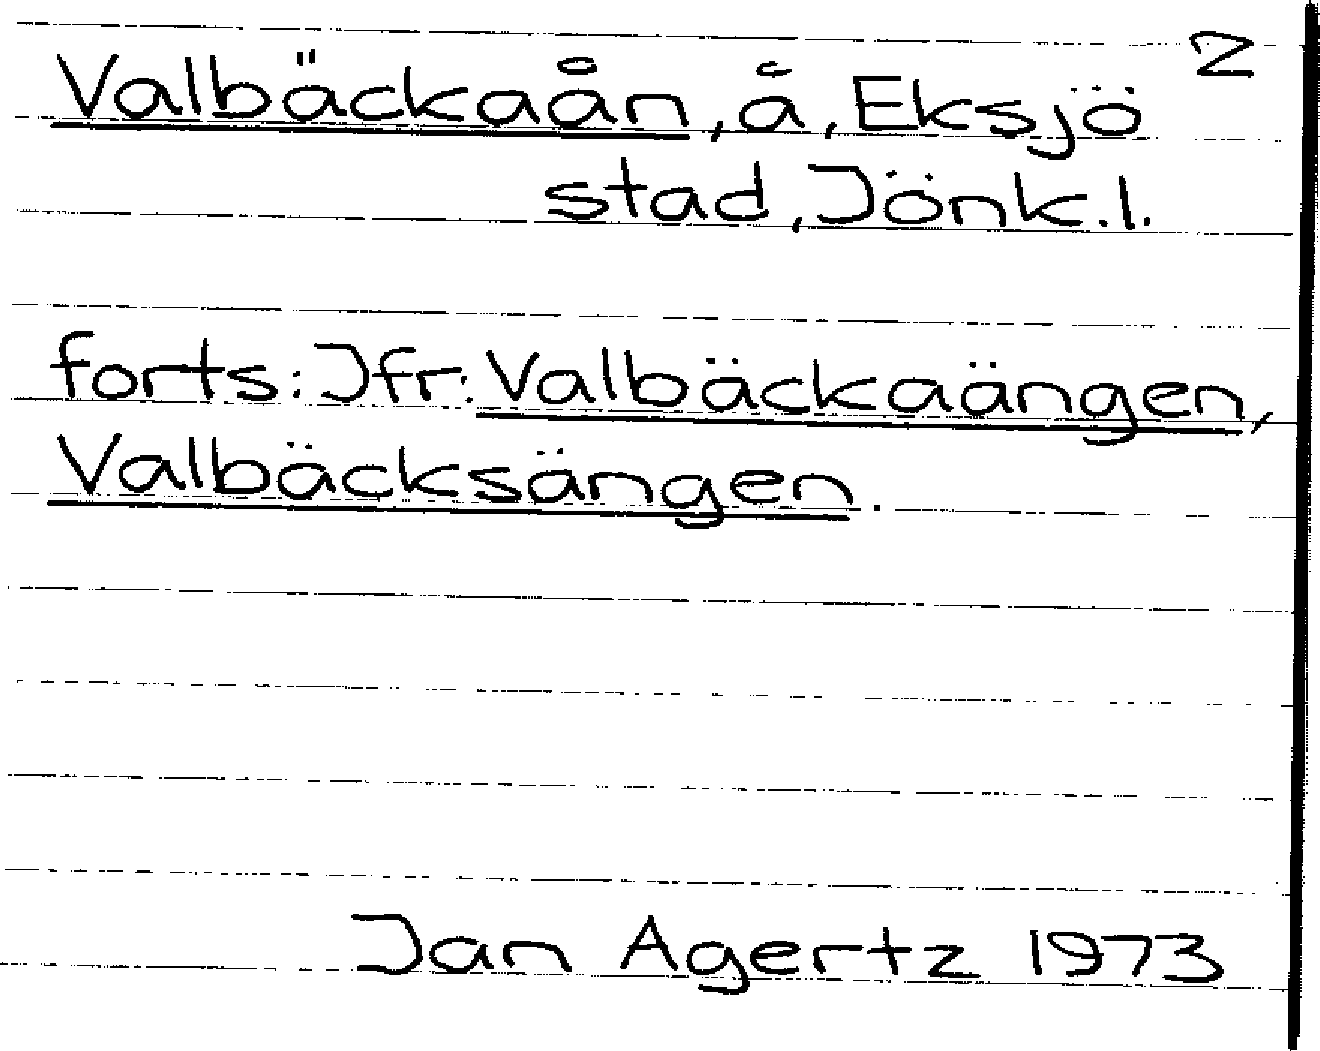 2
Valbäckaån, å, Eksjö
stad, Jönk.l.
forts: Jfr. Valbäckaängen,
Valbäcksängen.
Jan Agertz 1973